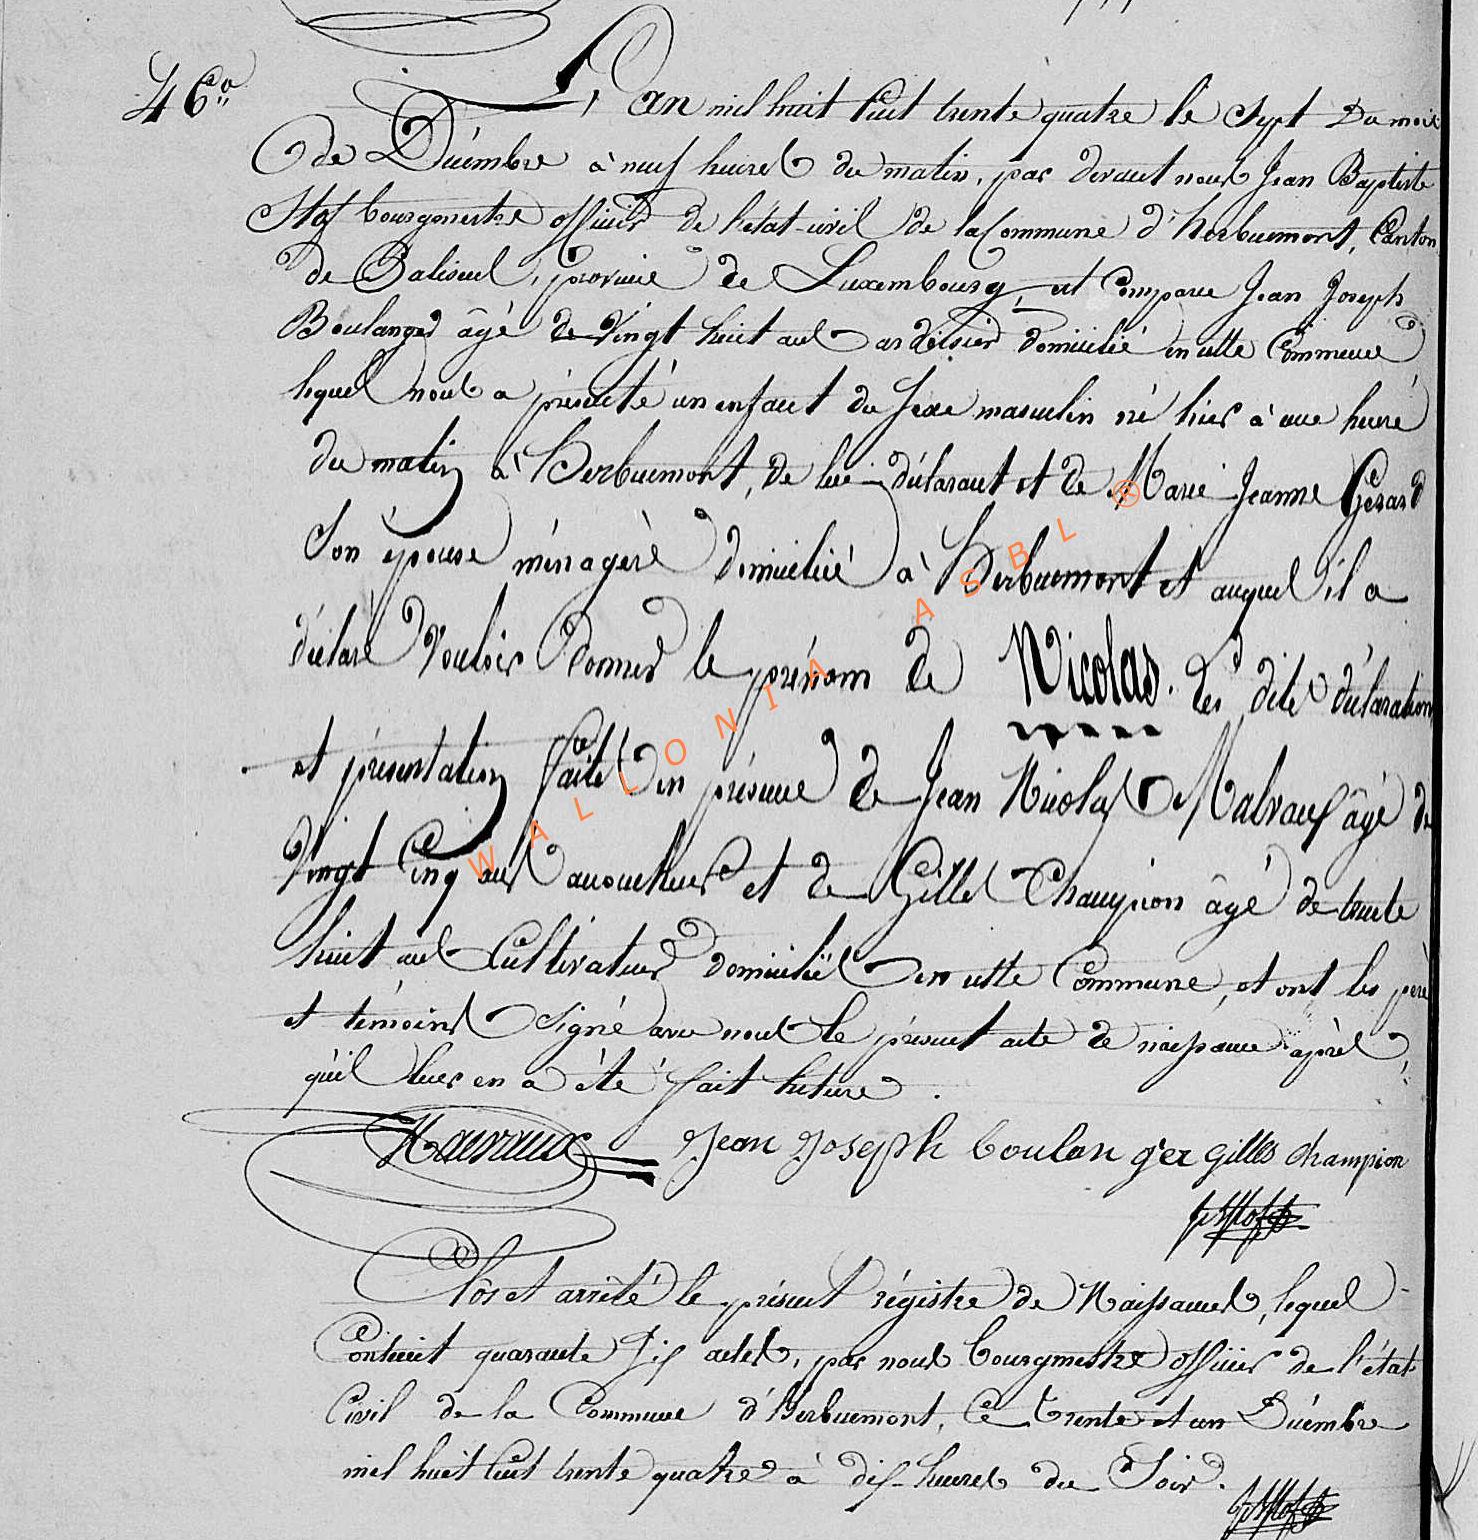 46.°
L'an mil huit cent trente quatre le Sept du mois
de Décembre à neuf heures du matin, par devant nous Jean Baptiste
Stof bourgmestre officier de l'état-civil de la Commune d'herbeumont, Canton
de Paliseul, province de Luxembourg, est comparu Jean Joseph
Boulanger âgé de vingt huit ans ardoisier domicilié en cette Commune
lequel nous a présenté un enfant du sexe masculin né hier à une heure
du matin à herbeumont, de lui déclarant et de Marie Jeanne Gérard
Son épouse ménagère domiciliée à herbeumont et auquel il a
déclaré vouloir donner le prénom de Nicolas. Les dites déclaration
et présentation faites en présence de Jean Nicolas Malvaux âgé de
Vingt Cinq ans accoucheur et de Gilles Champion âgé de trente
huit ans Cultivateur domiciliés en cette Commune, et ont les père
et témoins Signé avec nous le présent acte de naissance après
qu'il leur en a été fait lecture.
Jean Joseph boulan ger Gilles champion
Clos et arrêté le présent régistre de Naissances, lequel
Contient quarante Six actes, par nous bourgmestre officier de l'état
Civil de la Commune d'Herbeumont, Ce trente et un Décembre
mil huit cent trente quatre à dix heures du Soir.
WALLONIA ASBL ®